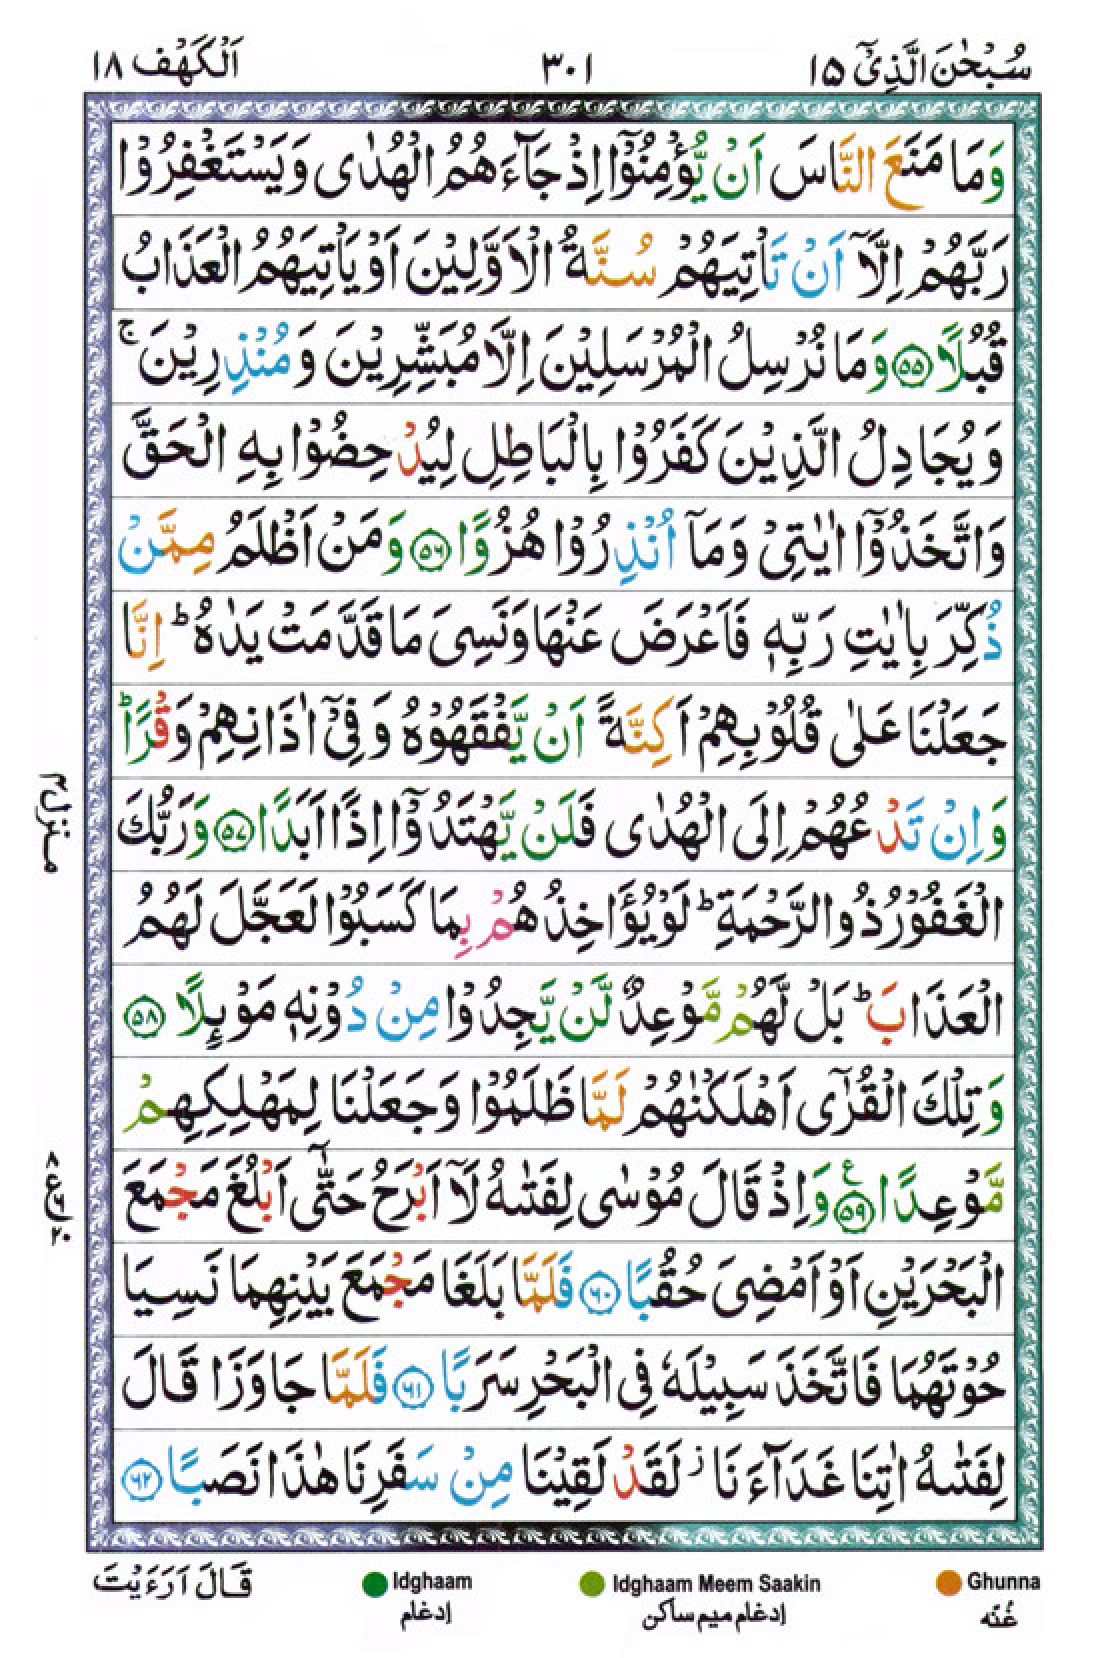 سُبْحٰنَ الَّذِیْۤ ۱۵
۳۰۱
اَلْكَهْف ۱۸
وَمَا مَنَعَ النَّاسَ اَنْ یُّؤْمِنُوْۤا اِذْ جَآءَهُمُ الْهُدٰی وَیَسْتَغْفِرُوْا
رَبَّهُمْ اِلَّاۤ اَنْ تَاْتِیَهُمْ سُنَّةُ الْاَوَّلِیْنَ اَوْ یَاْتِیَهُمُ الْعَذَابُ
قُبُلًا ﴿۵۵﴾ وَمَا نُرْسِلُ الْمُرْسَلِیْنَ اِلَّا مُبَشِّرِیْنَ وَمُنْذِرِیْنَ ۚ
وَیُجَادِلُ الَّذِیْنَ كَفَرُوْا بِالْبَاطِلِ لِیُدْحِضُوْا بِهِ الْحَقَّ
وَاتَّخَذُوْۤا اٰیٰتِیْ وَمَاۤ اُنْذِرُوْا هُزُوًا ﴿۵۶﴾ وَمَنْ اَظْلَمُ مِمَّنْ
ذُكِّرَ بِاٰیٰتِ رَبِّهٖ فَاَعْرَضَ عَنْهَا وَنَسِیَ مَا قَدَّمَتْ یَدٰهُ ؕ اِنَّا
جَعَلْنَا عَلٰی قُلُوْبِهِمْ اَكِنَّةً اَنْ یَّفْقَهُوْهُ وَفِیْۤ اٰذَانِهِمْ وَقْرًا ؕ
وَاِنْ تَدْعُهُمْ اِلَی الْهُدٰی فَلَنْ یَّهْتَدُوْۤا اِذًا اَبَدًا ﴿۵۷﴾ وَرَبُّكَ
الْغَفُوْرُ ذُو الرَّحْمَةِ ؕ لَوْ یُؤَاخِذُهُمْ بِمَا كَسَبُوْا لَعَجَّلَ لَهُمُ
الْعَذَابَ ؕ بَلْ لَّهُمْ مَّوْعِدٌ لَّنْ یَّجِدُوْا مِنْ دُوْنِهٖ مَوْىِٕلًا ﴿۵۸﴾
وَتِلْكَ الْقُرٰۤی اَهْلَكْنٰهُمْ لَمَّا ظَلَمُوْا وَجَعَلْنَا لِمَهْلِكِهِمْ
مَّوْعِدًا ﴿۵۹﴾ ع وَاِذْ قَالَ مُوْسٰی لِفَتٰىهُ لَاۤ اَبْرَحُ حَتّٰۤی اَبْلُغَ مَجْمَعَ
الْبَحْرَیْنِ اَوْ اَمْضِیَ حُقُبًا ﴿۶۰﴾ فَلَمَّا بَلَغَا مَجْمَعَ بَیْنِهِمَا نَسِیَا
حُوْتَهُمَا فَاتَّخَذَ سَبِیْلَهٗ فِی الْبَحْرِ سَرَبًا ﴿۶۱﴾ فَلَمَّا جَاوَزَا قَالَ
لِفَتٰىهُ اٰتِنَا غَدَآءَنَا ؗ لَقَدْ لَقِیْنَا مِنْ سَفَرِنَا هٰذَا نَصَبًا ﴿۶۲﴾
منزل ۴
قَالَ اَرَءَیْتَ
Idghaam
ادغام
Idghaam Meem Saakin
ادغام میم ساکن
Ghunna
غُنّه